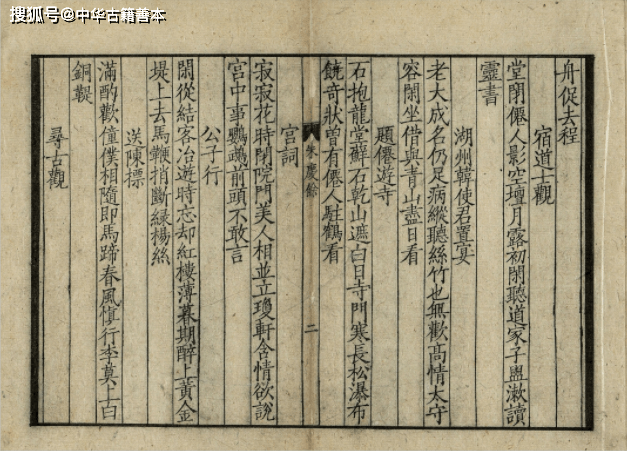 搜狐号@中华古籍善本
舟促去程
宿道士觀
堂閉僊人影空壇月露初閑聽道家子盥漱讀
靈書
湖州韓使君置宴
老大成名仍足病縱聽絲竹也無歡高情太守
容閑坐借與青山盡日看
題僊遊寺
石抱龍堂蘚石乾山遮白日寺門寒長松瀑布
饒奇狀曾有僊人駐鶴看
朱慶餘 二
宮詞
寂寂花時閉院門美人相並立瓊軒含情欲說
宮中事鸚鵡前頭不敢言
公子行
閑從結客冶遊時忘却紅樓薄暮期醉上黃金
堤上去馬鞭捎斷緑楊絲
送陳標
滿酌歡僮僕相隨即馬蹄春風慎行李莫上白
銅鞮
尋古觀